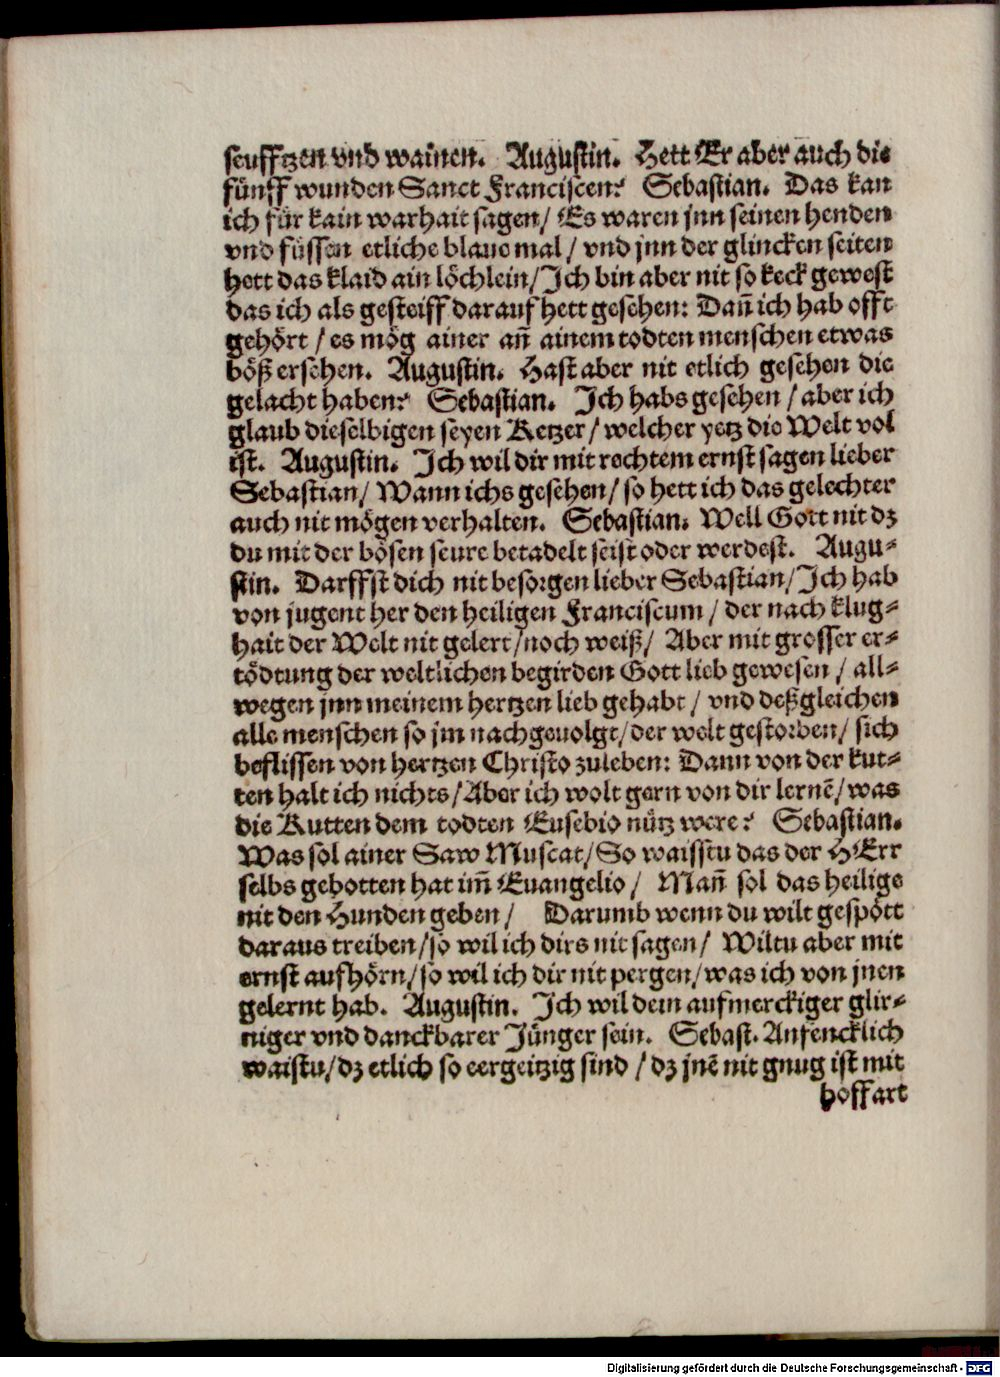 seufftzen vnd wainen. Augustin. Hett Er aber auch die
fünff wunden Sanct Franciscen? Sebastian. Das kan
ich für kain warhait sagen/ Es waren jnn seinen henden
vnd füssen etliche blaue mal/ vnd jnn der glincken seiten
hett das klaid ain löchlein/ Ich bin aber nit so keck gewest
das ich als gesteiff darauf hett gesehen: Dañ ich hab offt
gehört/ es mög ainer añ ainem todten menschen etwas
böß ersehen. Augustin. Hast aber nit etlich gesehen die
gelacht haben? Sebastian. Ich habs gesehen/ aber ich
glaub dieselbigen seyen Ketzer/ welcher yetz die Welt vol
ist. Augustin. Ich wil dir mit rechtem ernst sagen lieber
Sebastian/ Wann ichs gesehen/ so hett ich das gelechter
auch nit mögen verhalten. Sebastian. Well Gott nit dz
du mit der bösen seure betadelt seist oder werdest. Augu-
stin. Darffst dich nit besorgen lieber Sebastian/ Ich hab
von jugent her den heiligen Franciscum/ der nach klug-
hait der Welt nit gelert/ noch weiß/ Aber mit grosser er-
tödtung der weltlichen begirden Gott lieb gewesen/ all-
wegen jnn meinem hertzen lieb gehabt/ vnd deßgleichen
alle menschen so jm nachgeuolgt/ der welt gestorben/ sich
beflissen von hertzen Christo zuleben: Dann von der kut-
ten halt ich nichts/ Aber ich wolt gern von dir lernē/ was
die Kutten dem todten Eusebio nütz were? Sebastian.
Was sol ainer Saw Muscat/ So waisstu das der HErr
selbs gebotten hat im̃ Euangelio/ Mañ sol das heilige
nit den Hunden geben/ Darumb wenn du wilt gespött
daraus treiben/ so wil ich dirs nit sagen/ Wiltu aber mit
ernst aufhörn/ so wil ich dir nit pergen/ was ich von jnen
gelernt hab. Augustin. Ich wil dein aufmerckiger glir-
niger vnd danckbarer Jünger sein. Sebast. Anfencklich
waistu/ dz etlich so eergeitzig sind/ dz jnē nit gnug ist mit
hoffart
Digitalisierung gefördert durch die Deutsche Forschungsgemeinschaft - DFG